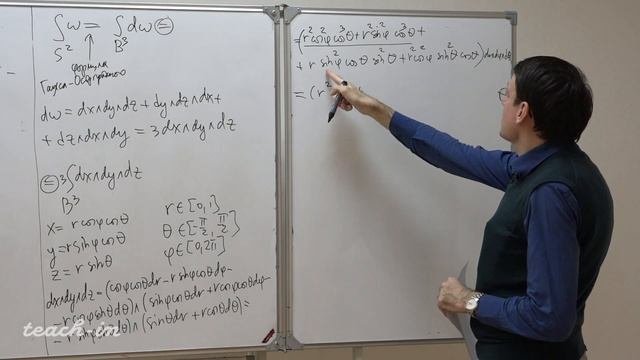 ∫ω = ∫dω ⊜
S² B³
формула
Гаусса-Остроградского
dω = dx∧dy∧dz + dy∧dz∧dx +
+ dz∧dx∧dy = 3dx∧dy∧dz
⊜ 3∫dx∧dy∧dz
B³
x = r cosφ cosθ r ∈ [0,1]
y = r sinφ cosθ θ ∈ [-π/2, π/2]
z = r sinθ φ ∈ [0,2π]
dx∧dy∧dz = (cosφ cosθ dr - r sinφ cosθ dφ -
- r cosφ sinθ dθ)∧(sinφ cosθ dr + r cosφ cosθ dφ -
- r sinφ sinθ dθ)∧(sinθ dr + r cosθ dθ) =
= (r² cos²φ cos³θ + r² sin²φ cos³θ +
+ r² sin²φ cosθ sin²θ + r² cos²φ sin²θ cosθ) dr∧dφ∧dθ
= (r²
teach-in